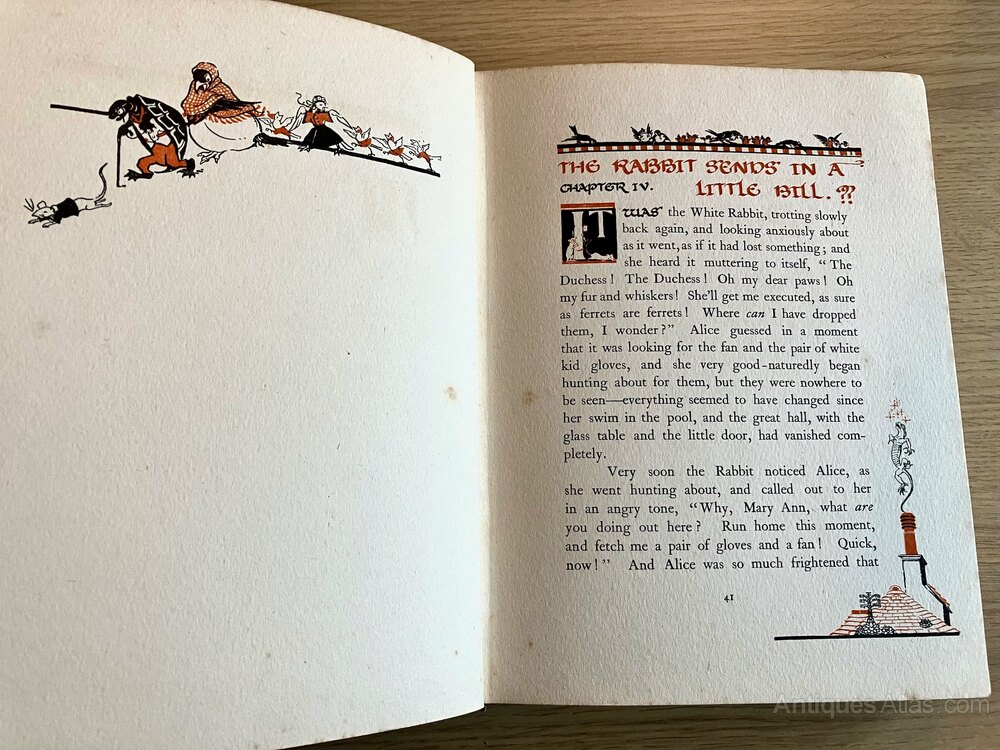 THE RABBIT SENDS IN A
CHAPTER IV. LITTLE BILL. ??
IT WAS the White Rabbit, trotting slowly
back again, and looking anxiously about
as it went, as if it had lost something; and
she heard it muttering to itself, “The
Duchess! The Duchess! Oh my dear paws! Oh
my fur and whiskers! She’ll get me executed, as sure
as ferrets are ferrets! Where can I have dropped
them, I wonder?” Alice guessed in a moment
that it was looking for the fan and the pair of white
kid gloves, and she very good-naturedly began
hunting about for them, but they were nowhere to
be seen—everything seemed to have changed since
her swim in the pool, and the great hall, with the
glass table and the little door, had vanished com-
pletely.
Very soon the Rabbit noticed Alice, as
she went hunting about, and called out to her
in an angry tone, “Why, Mary Ann, what are
you doing out here? Run home this moment,
and fetch me a pair of gloves and a fan! Quick,
now!” And Alice was so much frightened that
41
Antiques Atlas.com